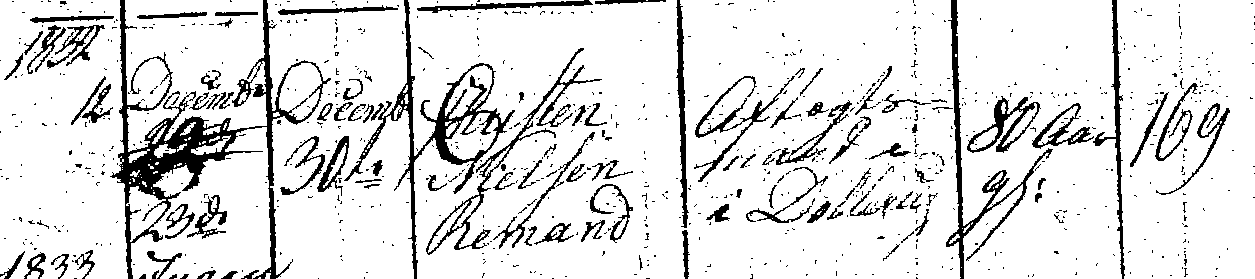 1832
12
Decembr
23de
Decemb
30te
Christen
Nielsen
Remand
Aftægts-
mand i
i Dollerup
80 Aar
gl:
169
1833